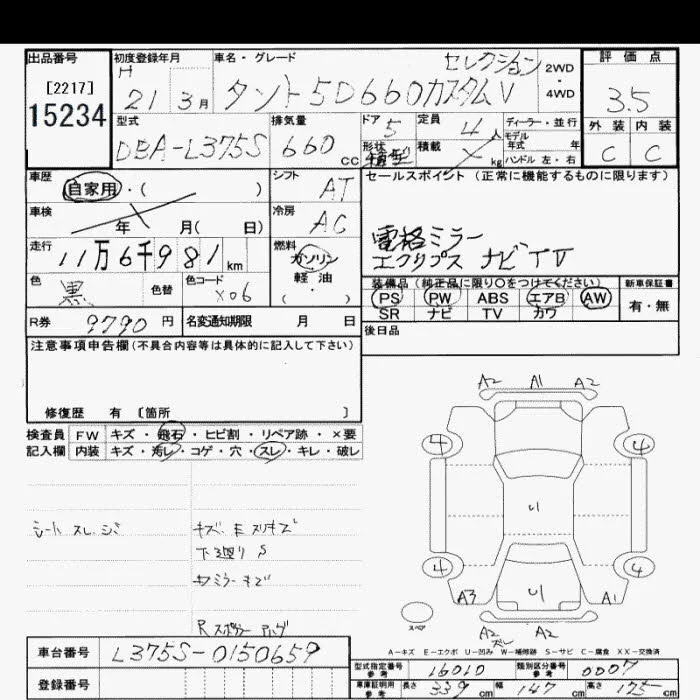 出品番号
[2217]
15234
初度登録年月
H
21 3月
車名・グレード
セレクション
タント 5D660カスタムV
2WD
・
4WD
評価点
3.5
外装 内装
C C
型式
DBA-L375S
排気量
660 cc
ドア 5
定員 4人
形状
積載 kg
ディーラー・並行
モデル
年式 年
ハンドル 左・右
車歴
自家用・( )
シフト
AT
車検
年 月( 日)
冷房
AC
走行
11万6千981km
燃料
ガソリン
軽・油
・( )
色
黒
色替
色コード
X06
R券 9790円
名変通知期限 月 日
セールスポイント (正常に機能するものに限ります)
電格ミラー
エクリプス ナビTV
装備品(純正品に限り〇をつけてください)
新車保証書
PS PW ABS エアB AW
SR ナビ TV カワ
有・無
後日品
注意事項申告欄(不具合内容等は具体的に記入して下さい)
修復歴 有 〔箇所 〕
検査員 FW キズ・飛石・ヒビ割・リペア跡・×要
記入欄 内装 キズ・汚レ・コゲ・穴・スレ・キレ・破レ
シート スレ、シミ
キズ、E スリキズ
下廻り S
ミラーキズ
A2 A1 A2
4 4
U
4 4
A3 U A1
A2 A2
ズレ
スペア
A-キズ E-エクボ U-凹み W-補修跡 S-サビ C-腐食 XX-交換済
車台番号 L375S-0150659
登録番号
型式指定番号
参考
16010
類別区分番号
参考
0007
車庫証明用
参考
長さ 339cm 幅 147cm 高さ 175cm